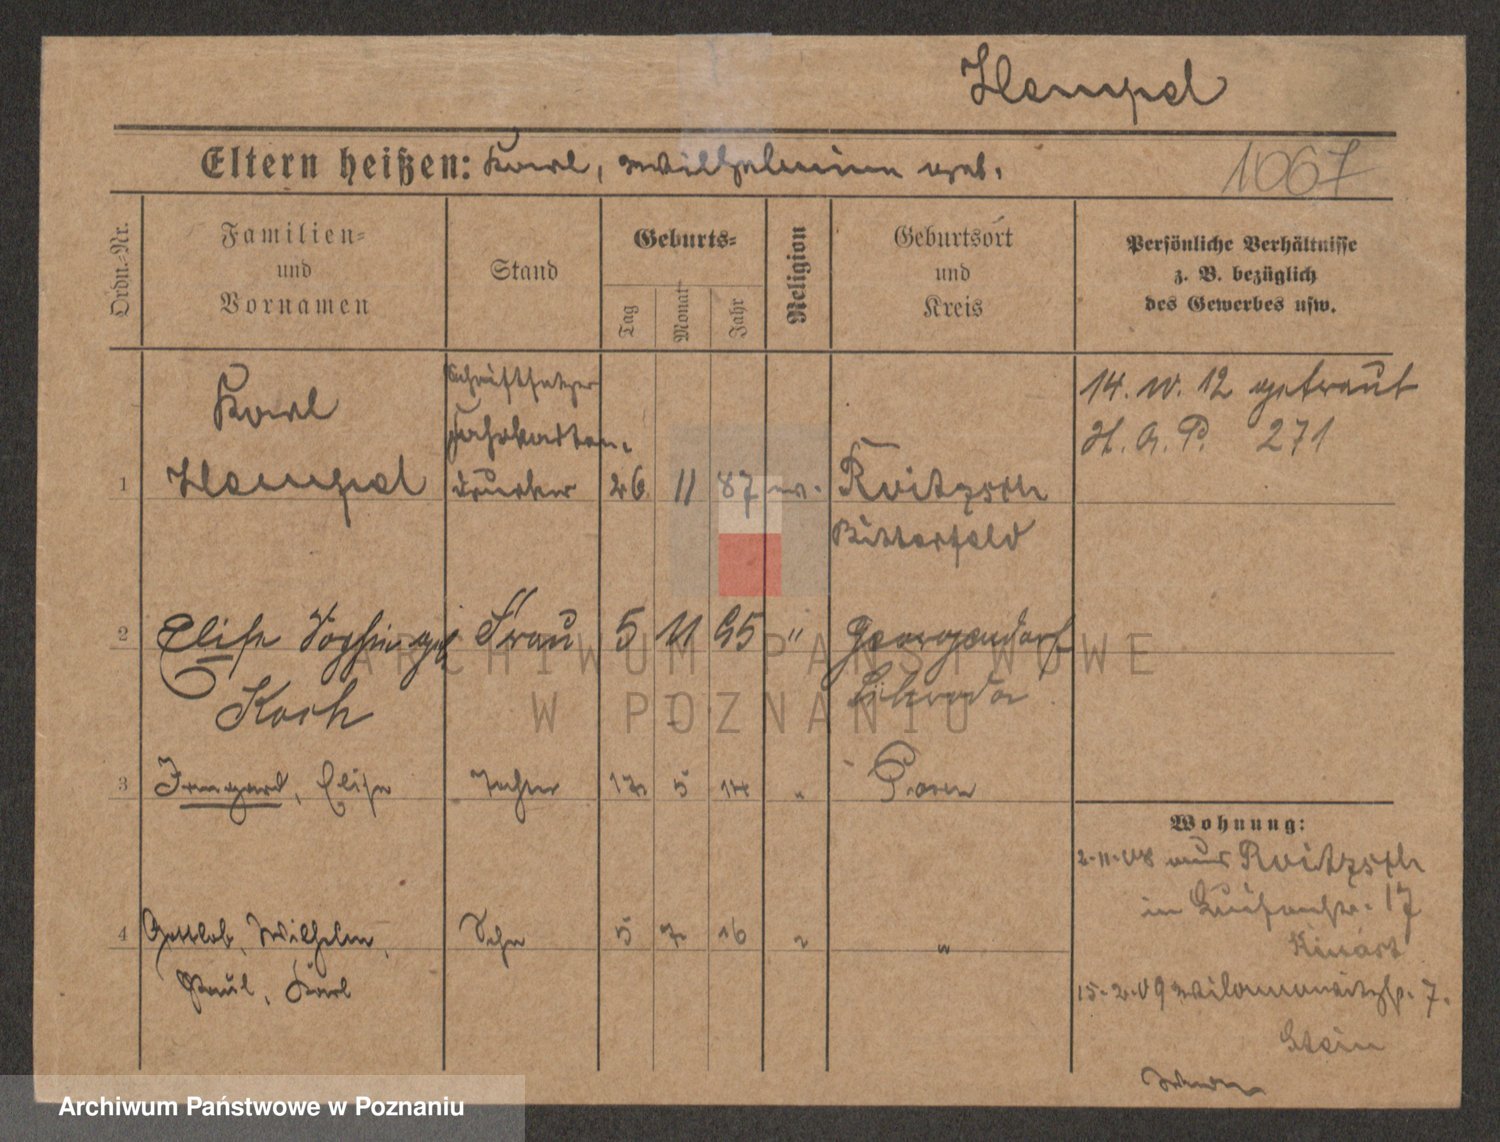 Hempel
Eltern heißen: Karl, Wilhelmine geb.
1067
Ordn.-Nr.
Familien-
und
Vornamen
Stand
Geburts-
Tag
Monat
Jahr
Religion
Geburtsort
und
Kreis
Persönliche Verhältnisse
z. B. bezüglich
des Gewerbes usw.
1
Karl
Hempel
Schriftsetzer
Fahrkarten-
drucker
26 11 87 ev.
Roitzsch
Bitterfeld
14. 10. 12 getraut
H. A. P. 271
2
Elise Sophie geb
Koch
Frau
5 11 95 "
Georgendorf
Schroda
3
Irmgard, Elise
Tochter
5 14 "
Posen
4
Gottlob, Wilhelm,
Paul, Karl
Sohn
5 7 16 "
"
Wohnung:
2-11-08 aus Roitzsch
in Luisenstr. 17
15-2-09 Wilamowitzstr. 7.
Stein
ARCHIWUM PAŃSTWOWE
W POZNANIU
Archiwum Państwowe w Poznaniu